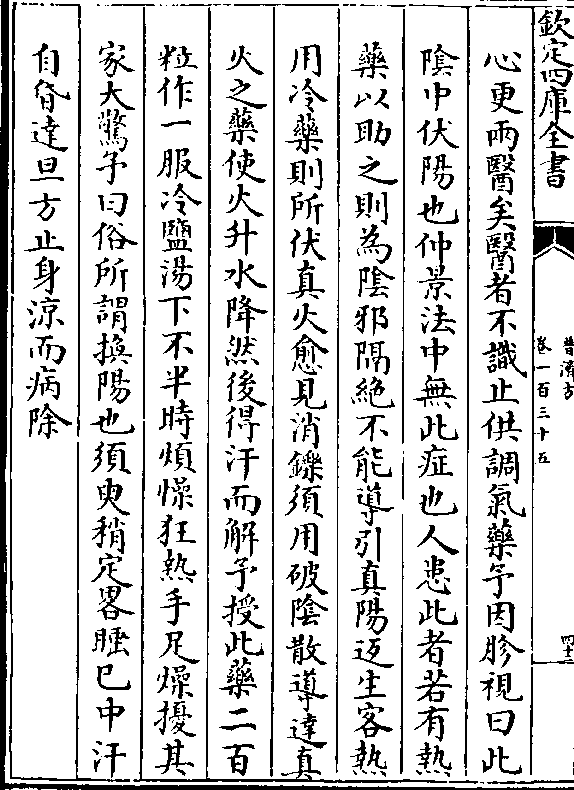 欽定四庫全書
普濟方
卷一百三十五
四十三
心更兩醫矣醫者不識止供調氣藥予因胗視曰此
隂中伏陽也仲景法中無此症也人患此者若有熱
藥以助之則為陰邪隔絶不能導引真陽迓生客熱
用冷藥則所伏真火愈見消鑠須用破陰散導達真
火之藥使火升水降然後得汗而解予授此藥二百
粒作一服冷鹽湯下不半時煩懆狂熱手足燥擾其
家大驚予曰俗所謂換陽也須臾稍定畧睡已中汗
自昏達旦方止身涼而病除